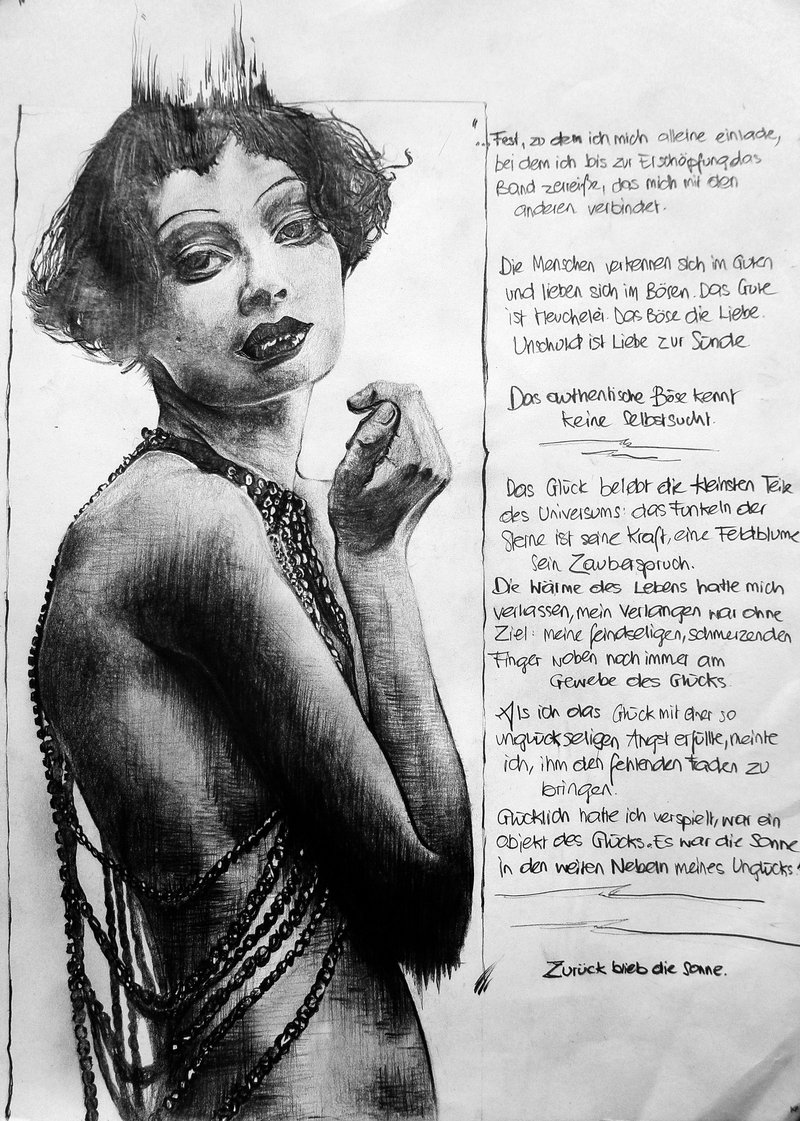 "...Fest, zu dem ich mich alleine einlade,
bei dem ich bis zur Erschöpfung das
Band zerreiße, das mich mit den
anderen verbindet.
Die Menschen verkennen sich im Guten
und lieben sich im Bösen. Das Gute
ist Heuchelei. Das Böse die Liebe.
Unschuld ist Liebe zur Sünde
Das authentische Böse kennt
keine Selbstsucht.
Das Glück belebt die kleinsten Teile
des Universums: das Funkeln der
Sterne ist seine Kraft, eine Feldblume
sein Zauberspruch.
Die Wärme des Lebens hatte mich
verlassen, mein Verlangen war ohne
Ziel: meine feindseligen, schmerzenden
Finger woben noch immer am
Gewebe des Glücks.
Als ich das Glück mit einer so
unglückseligen Angst erfüllte, meinte
ich, ihm den fehlenden Faden zu
bringen.
Glücklich hatte ich verspielt, war ein
Objekt des Glücks. Es war die Sonne
in den weiten Nebeln meines Unglücks."
Zurück blieb die Sonne.